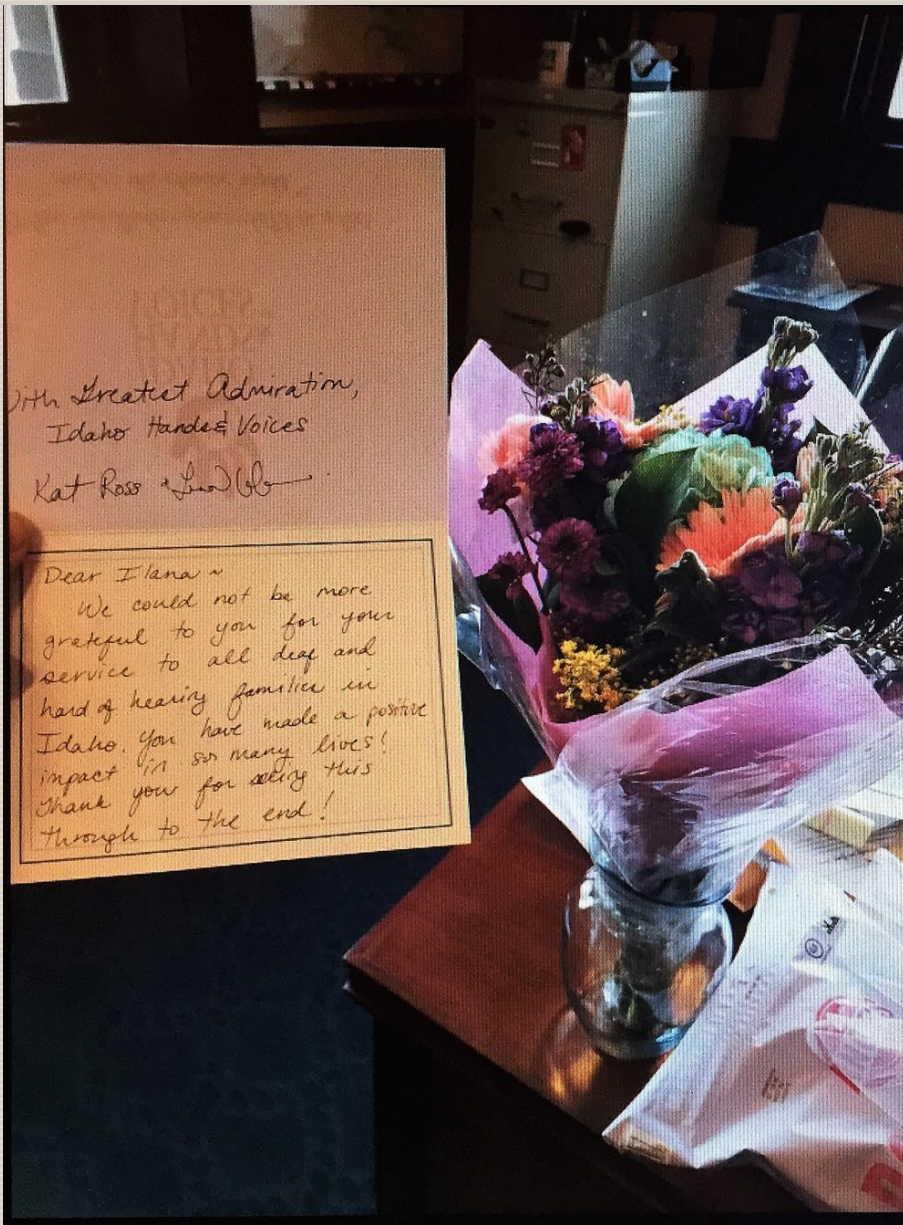 With Greatest Admiration,
Idaho Hands & Voices
Kat Ross &
Dear Ilana ~
We could not be more
grateful to you for your
service to all deaf and
hard of hearing families in
Idaho. You have made a positive
impact in so many lives!
Thank you for seeing this
through to the end!